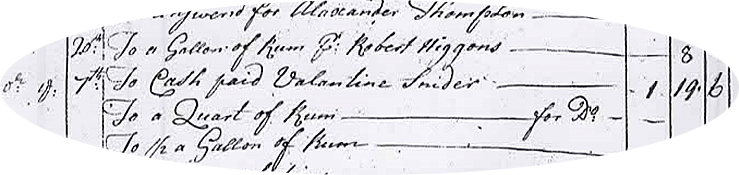 for Alaxander Thompson
20th To a Gallon of Rum Pr. Robert Higgons 8
18: 7th To Cash paid Valantine Snider 1 19. 6
To a Quart of Rum for Do.
To ½ a Gallon of Rum